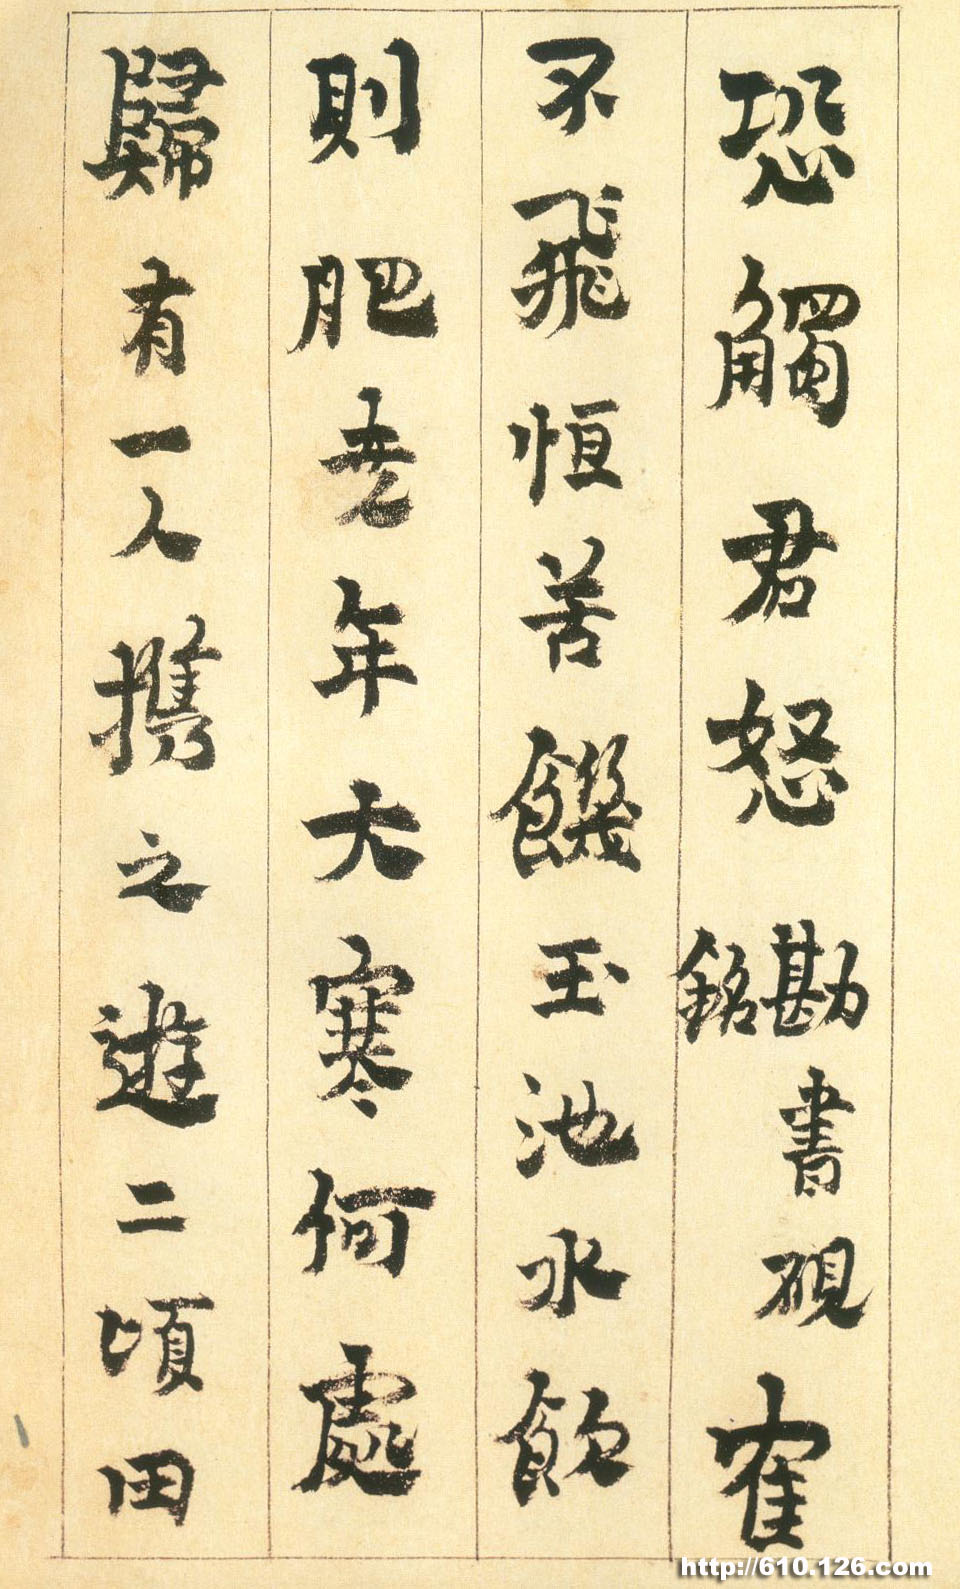 恐觸君怒 勘書硯銘 寉
不飛恒苦饑玉池水飲
則肥堯年大寒何處
歸有一人携之遊二頃田
http://610.126.com